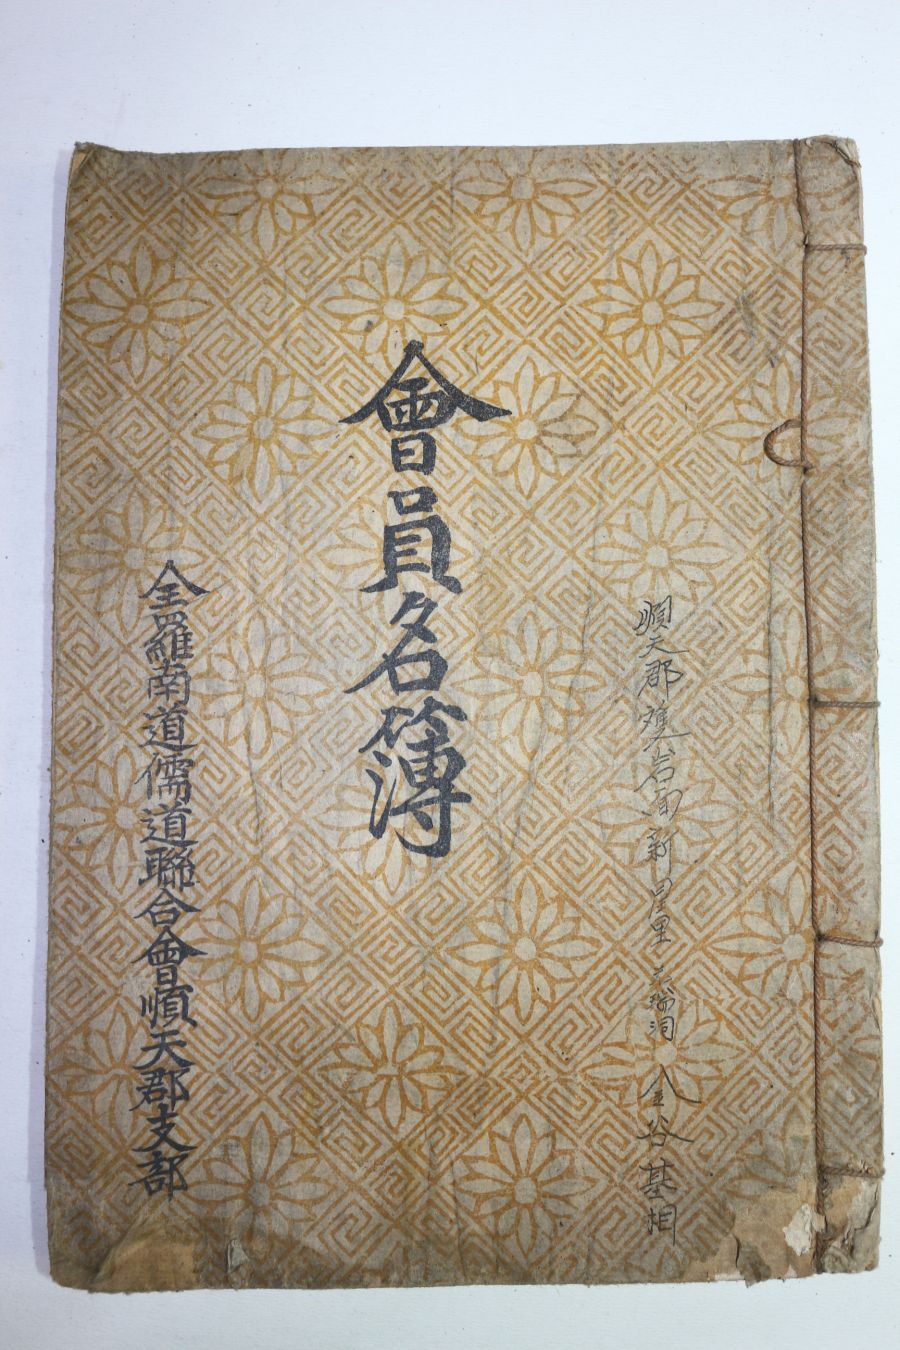 順天郡雙岩面新星里 瑞洞 金谷基相
會員名簿
全羅南道儒道聯合會順天郡支部